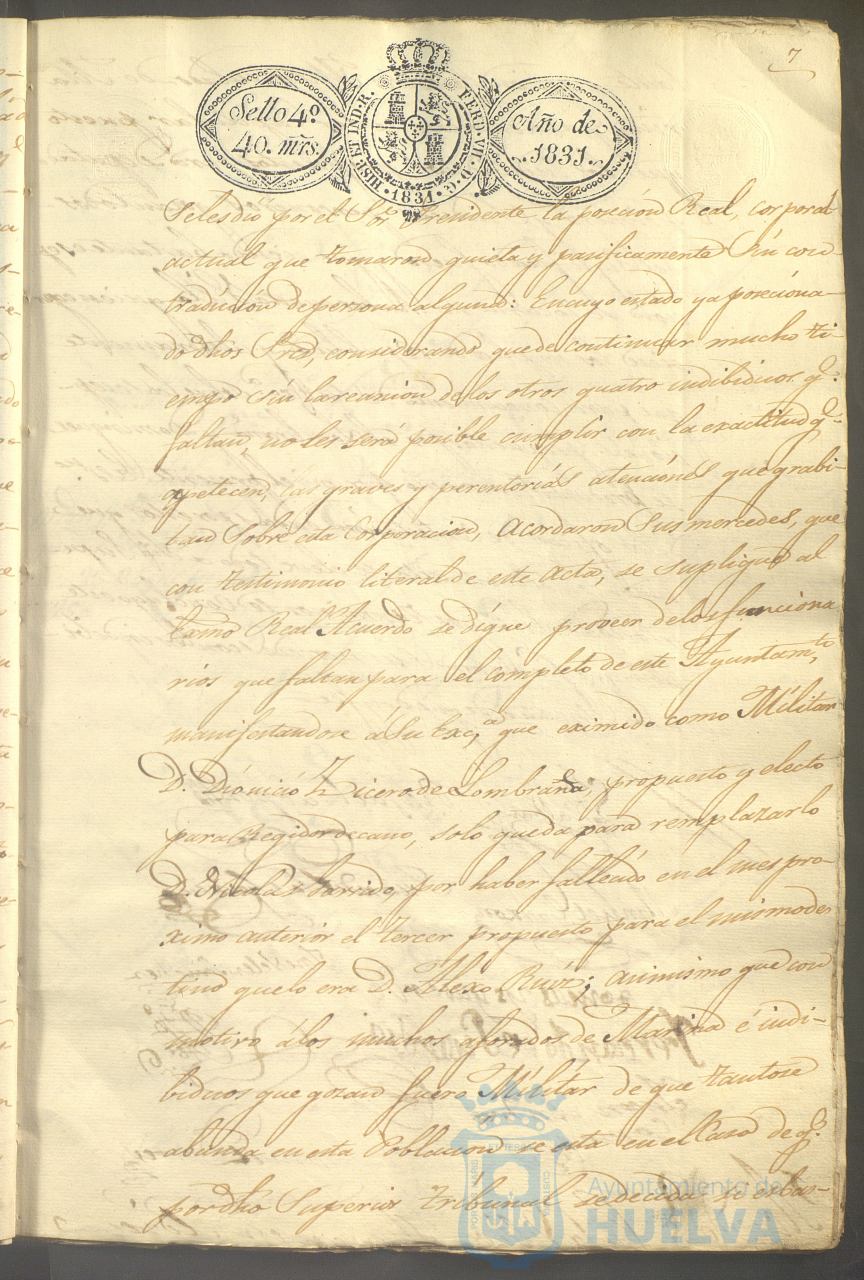 7
Sello 4º
40. mrs.
HISP. ET IND. R. FERD. VII. D. G.
1831
Año de
1831.
Selesdio por el Sor. Presidente la poseción Real, corporal
actual que tomaron quieta y pasificamente Sin con-
tradiccion de persona alguna: En cuyo estado ya poseciona-
dos dhos Sres, considerando que de continuar mucho ti-
empo sin la reunion de los otros quatro indibiduos q.e
faltan, no les será posible cumplir con la exactitud q.e
apetecen, las graves y perentorias atenciónes que grabi-
tan Sobre esta Corporacion, Acordaron Sus mercedes, que
con testimonio literal de este Acta, se suplique al
Real Acuerdo se digne proveer delos funciona
rios que faltan para el completo de este Ayuntam.to,
manifestandose á Su Exc.a que eximido como Militar
D. Dionicio Zicero de Lombraña, propuesto y electo
para Regidor decano, solo queda para remplazarlo
D. Nicolas Garrido, por haber fallecido en el mes pro-
ximo anterior el tercer propuesto para el mismo des
tino que lo era D. Alexo Ruiz; asimismo que con
motivo á los muchos aforados de Marina é indi-
biduos que gozan fuero Militar de que tanto se
abunda en esta Poblacion se esta en el Caso de q.e
por dho Superior Tribunal se decida si es bas-
Ayuntamiento de
HUELVA